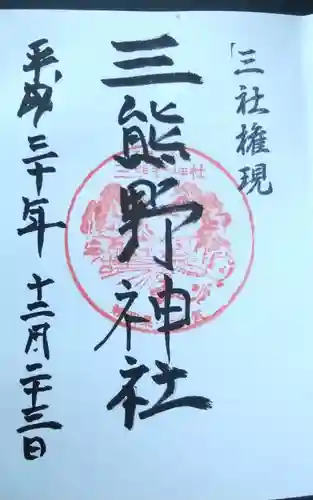 「三社権現
三熊野神社
平成三十年 十二月二十三日
三熊野神社